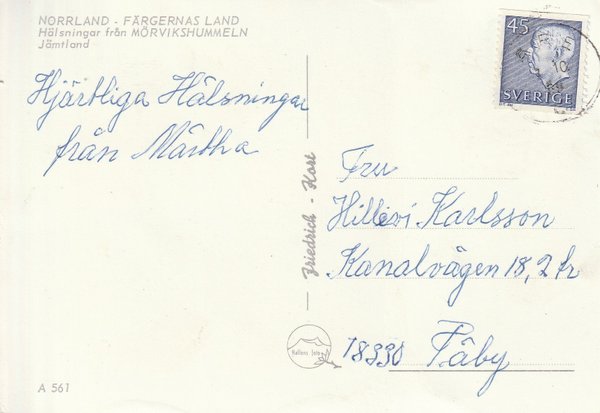 NORRLAND - FÄRGERNAS LAND
Hälsningar från MÖRVIKSHUMMELN
Jämtland
45
SVERIGE
Hjärtliga Hälsningar
från Märtha
Friedrich - Kort
Fru
Hillevi Karlsson
Kanalvägen 18, 2 tr
18330 Täby
Hallens foto
A 561